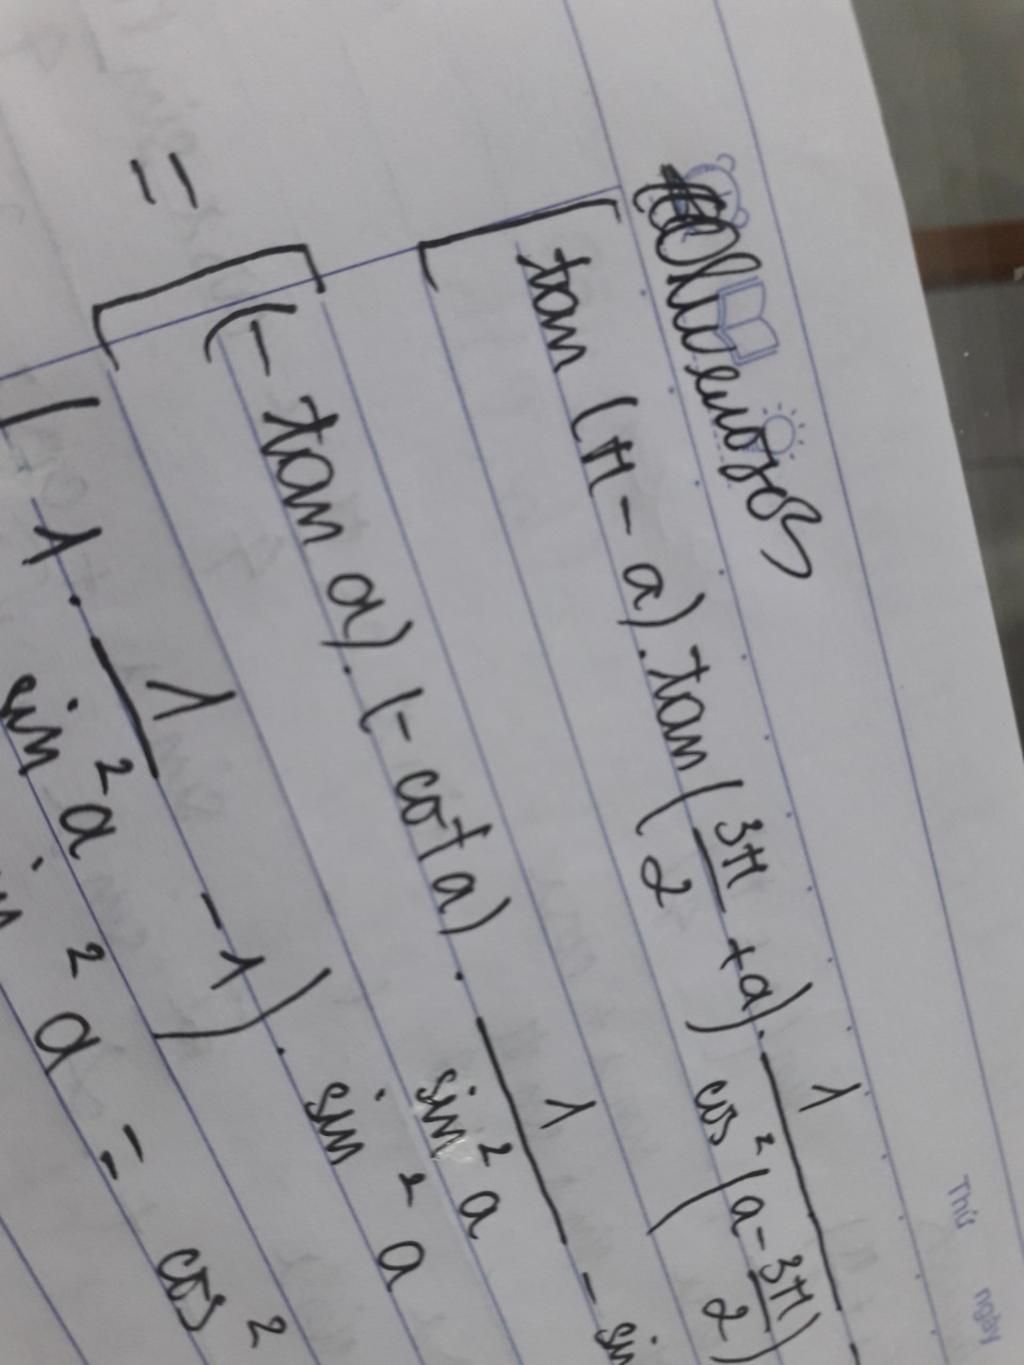 Thứ
ngày
[tan(π - a).tan(3π/2 + a).1/cos²(a - 3π/2) -
= [(-tan a).(-cot a).1/sin²a -
(1.1/sin²a - 1).sin²a
sin²a = cos²